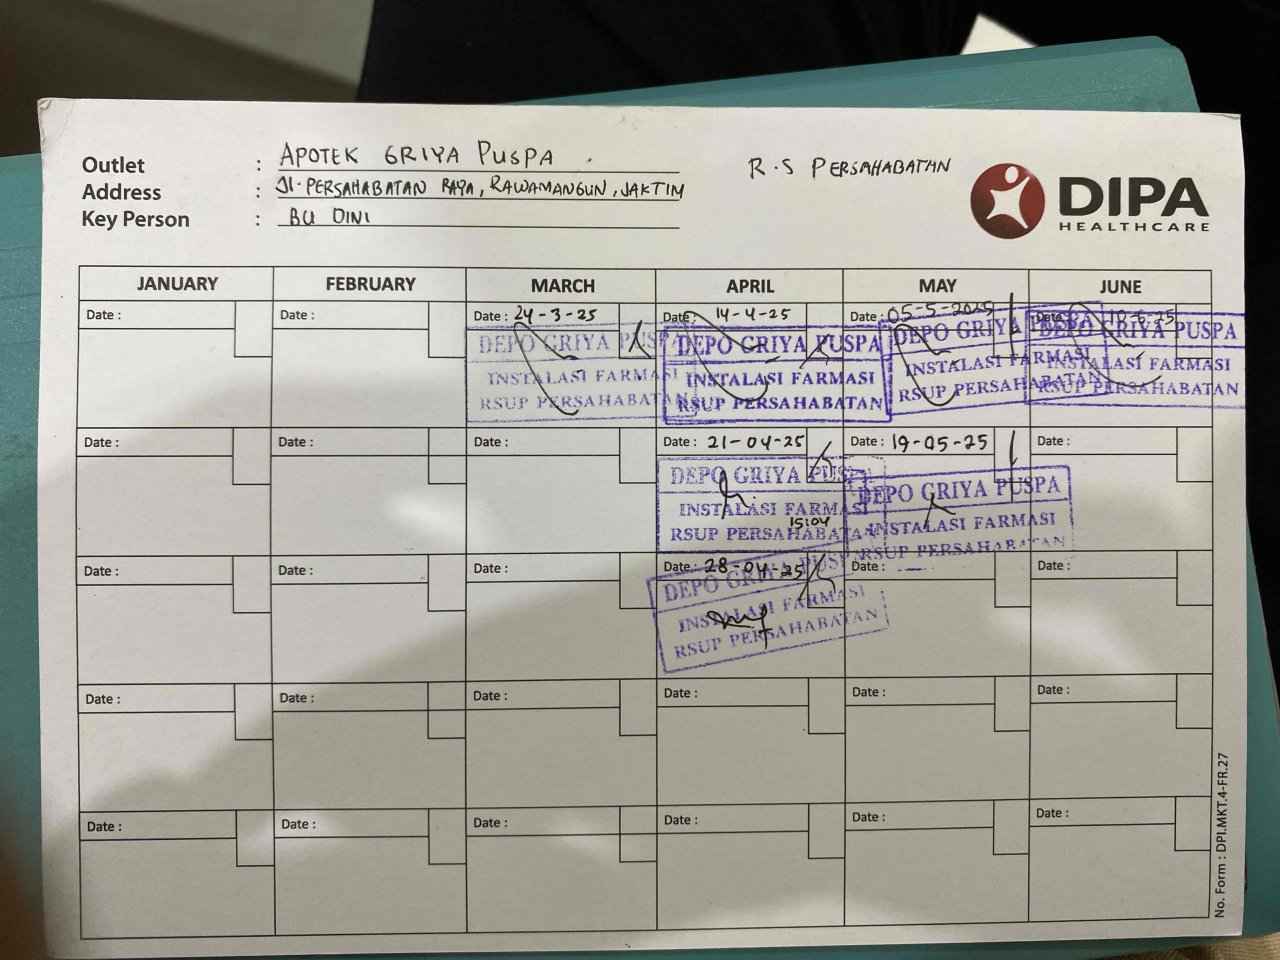 Outlet : APOTEK GRIYA PUSPA . R.S PERSAHABATAN
Address : Jl. PERSAHABATAN RAYA, RAWAMANGUN, JAKTIM
Key Person : BU DINI
DIPA
HEALTHCARE
JANUARY FEBRUARY MARCH APRIL MAY JUNE
Date : Date : Date : 24-3-25 Date : 14-4-25 Date : 05-5-2025 Date : 10-6-25
DEPO GRIYA PUSPA DEPO GRIYA PUSPA DEPO GRIYA PUSPA DEPO GRIYA PUSPA
INSTALASI FARMASI INSTALASI FARMASI INSTALASI FARMASI INSTALASI FARMASI
RSUP PERSAHABATAN RSUP PERSAHABATAN RSUP PERSAHABATAN RSUP PERSAHABATAN
Date : Date : Date : Date : 21-04-25 Date : 19-05-25 Date :
DEPO GRIYA PUSPA DEPO GRIYA PUSPA
INSTALASI FARMASI INSTALASI FARMASI
15:04
RSUP PERSAHABATAN RSUP PERSAHABATAN
Date : Date : Date : Date : 28-04-25 Date : Date :
DEPO GRIYA PUSPA
INSTALASI FARMASI
RSUP PERSAHABATAN
Date : Date : Date : Date : Date : Date :
Date : Date : Date : Date : Date : Date :
No. Form : DPI.MKT.4-FR.27